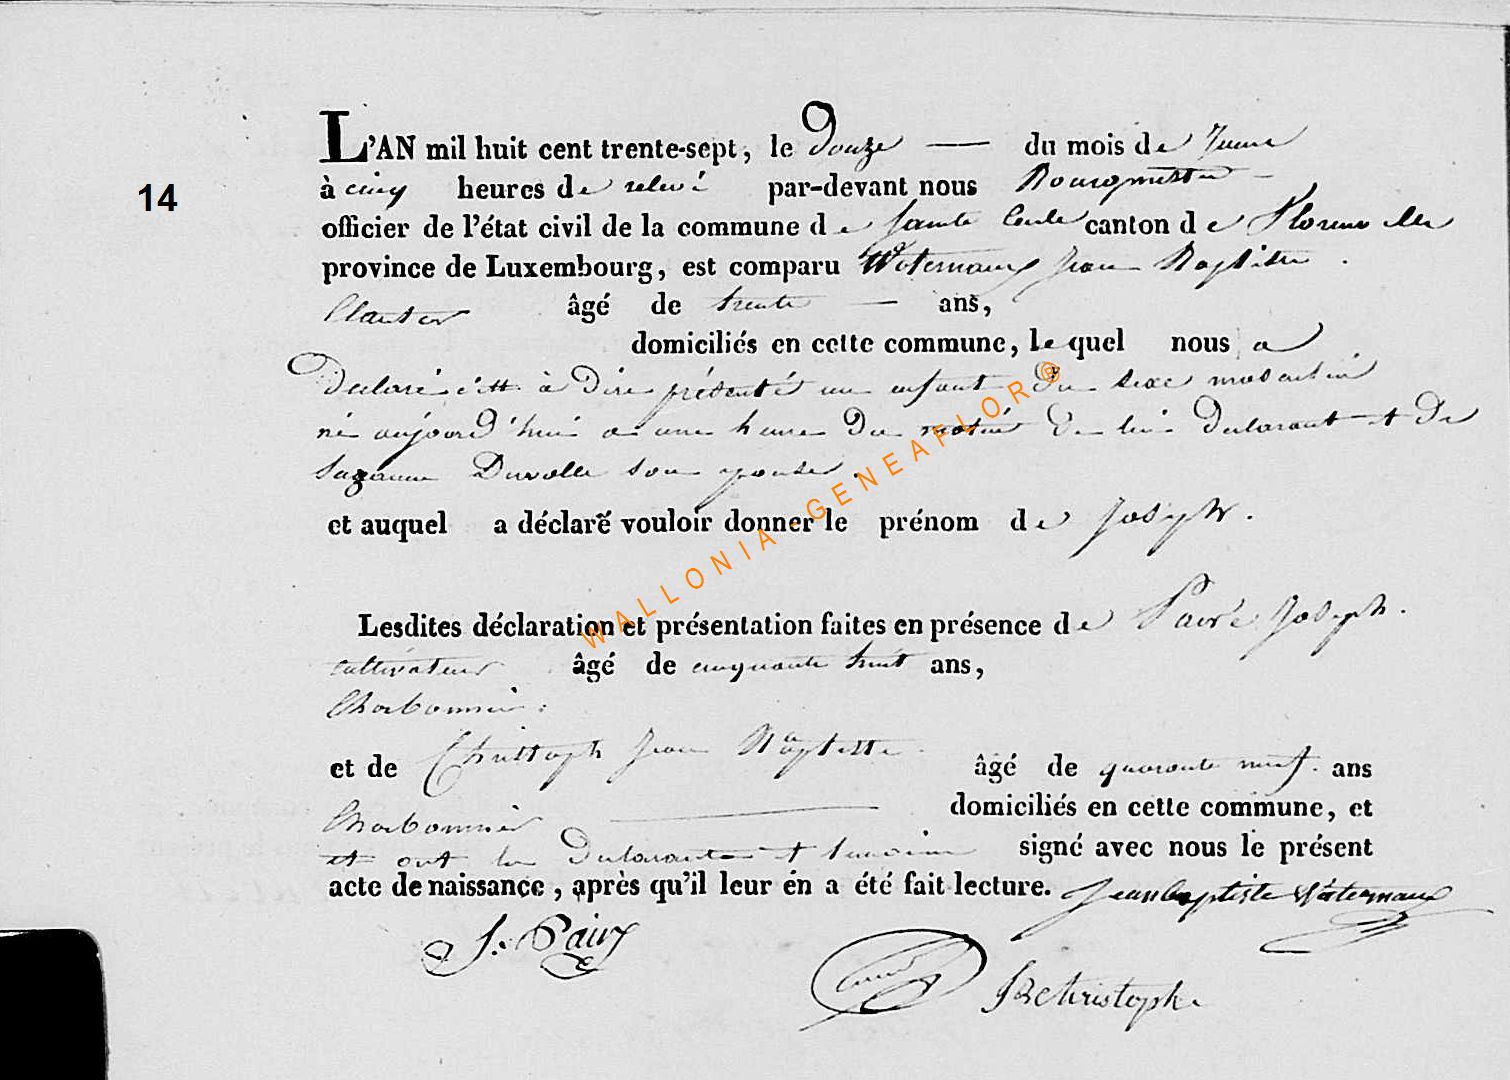 L'AN mil huit cent trente-sept, le Douze — du mois de Juin
14
à cinq heures de relevé par-devant nous Bourgmestre —
officier de l'état civil de la commune de Sainte Cecile canton de Florenville
province de Luxembourg, est comparu Waternaux Jean Baptiste .
âgé de trente — ans,
domiciliés en cette commune, le quel nous a
Declaré et à Dire présenté un enfant Du sexe masculin
né aujourd'hui a une heure Du matin De lui Declarant et De
Suzanne Duvolle son epouse .
et auquel a déclaré vouloir donner le prénom de Joseph .
WALLONIA - GENEAFLOR®
Lesdites déclaration et présentation faites en présence de Joseph .
cultivateur âgé de cinquante huit ans,
Charbonnier :
et de Christoph Jean Baptiste âgé de quarante neuf . ans
Charbonnier — domiciliés en cette commune, et
et ont les Declarants et temoins signé avec nous le présent
acte de naissance, après qu'il leur en a été fait lecture. Jean baptiste Waternaux
J. JB Christophe